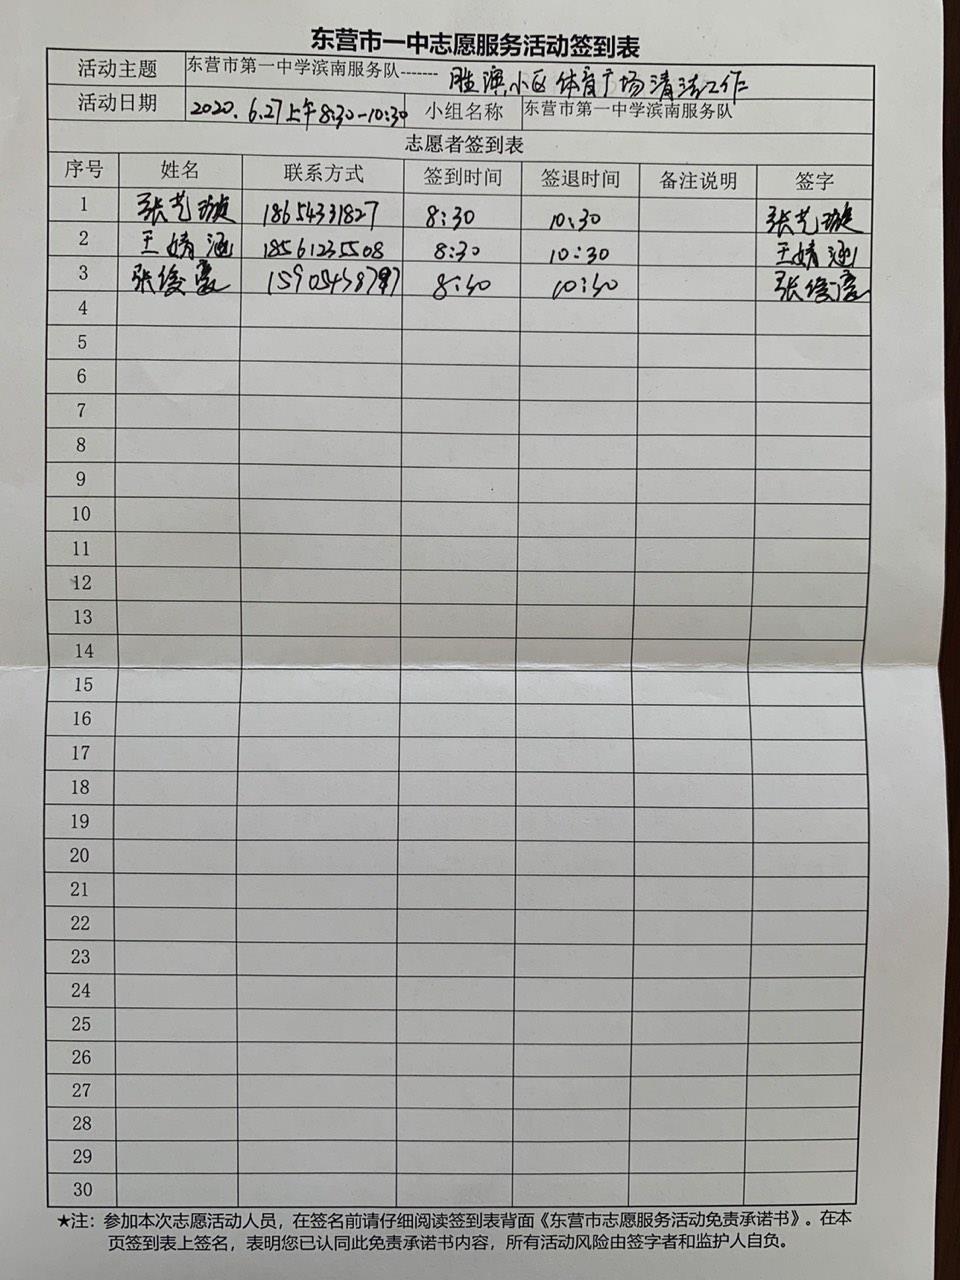 东营市一中志愿服务活动签到表
活动主题 东营市第一中学滨南服务队------- 胜滨小区体育广场清洁工作
活动日期 2020.6.27上午8:30-10:30 小组名称 东营市第一中学滨南服务队
志愿者签到表
序号 姓名 联系方式 签到时间 签退时间 备注说明 签字
1 张艺璇 18654331827 8:30 10:30 张艺璇
2 王婧涵 18561235508 8:30 10:30 王婧涵
3 张俊豪 8:30 10:30 张俊豪
4
5
6
7
8
9
10
11
12
13
14
15
16
17
18
19
20
21
22
23
24
25
26
27
28
29
30
★注：参加本次志愿活动人员，在签名前请仔细阅读签到表背面《东营市志愿服务活动免责承诺书》。在本
页签到表上签名，表明您已认同此免责承诺书内容，所有活动风险由签字者和监护人自负。